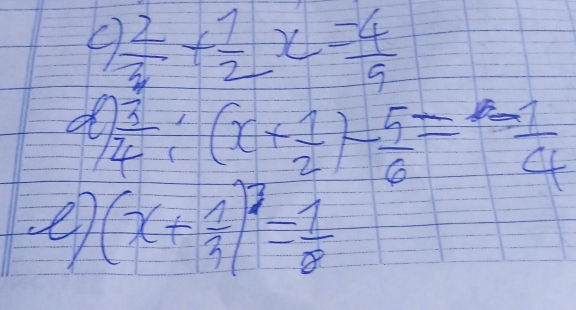 c) 2/3 + 1/2 x = 4/5
d) 3/4 : (x + 1/2) - 5/6 = -1/4
e) (x + 1/3)³ = 1/8